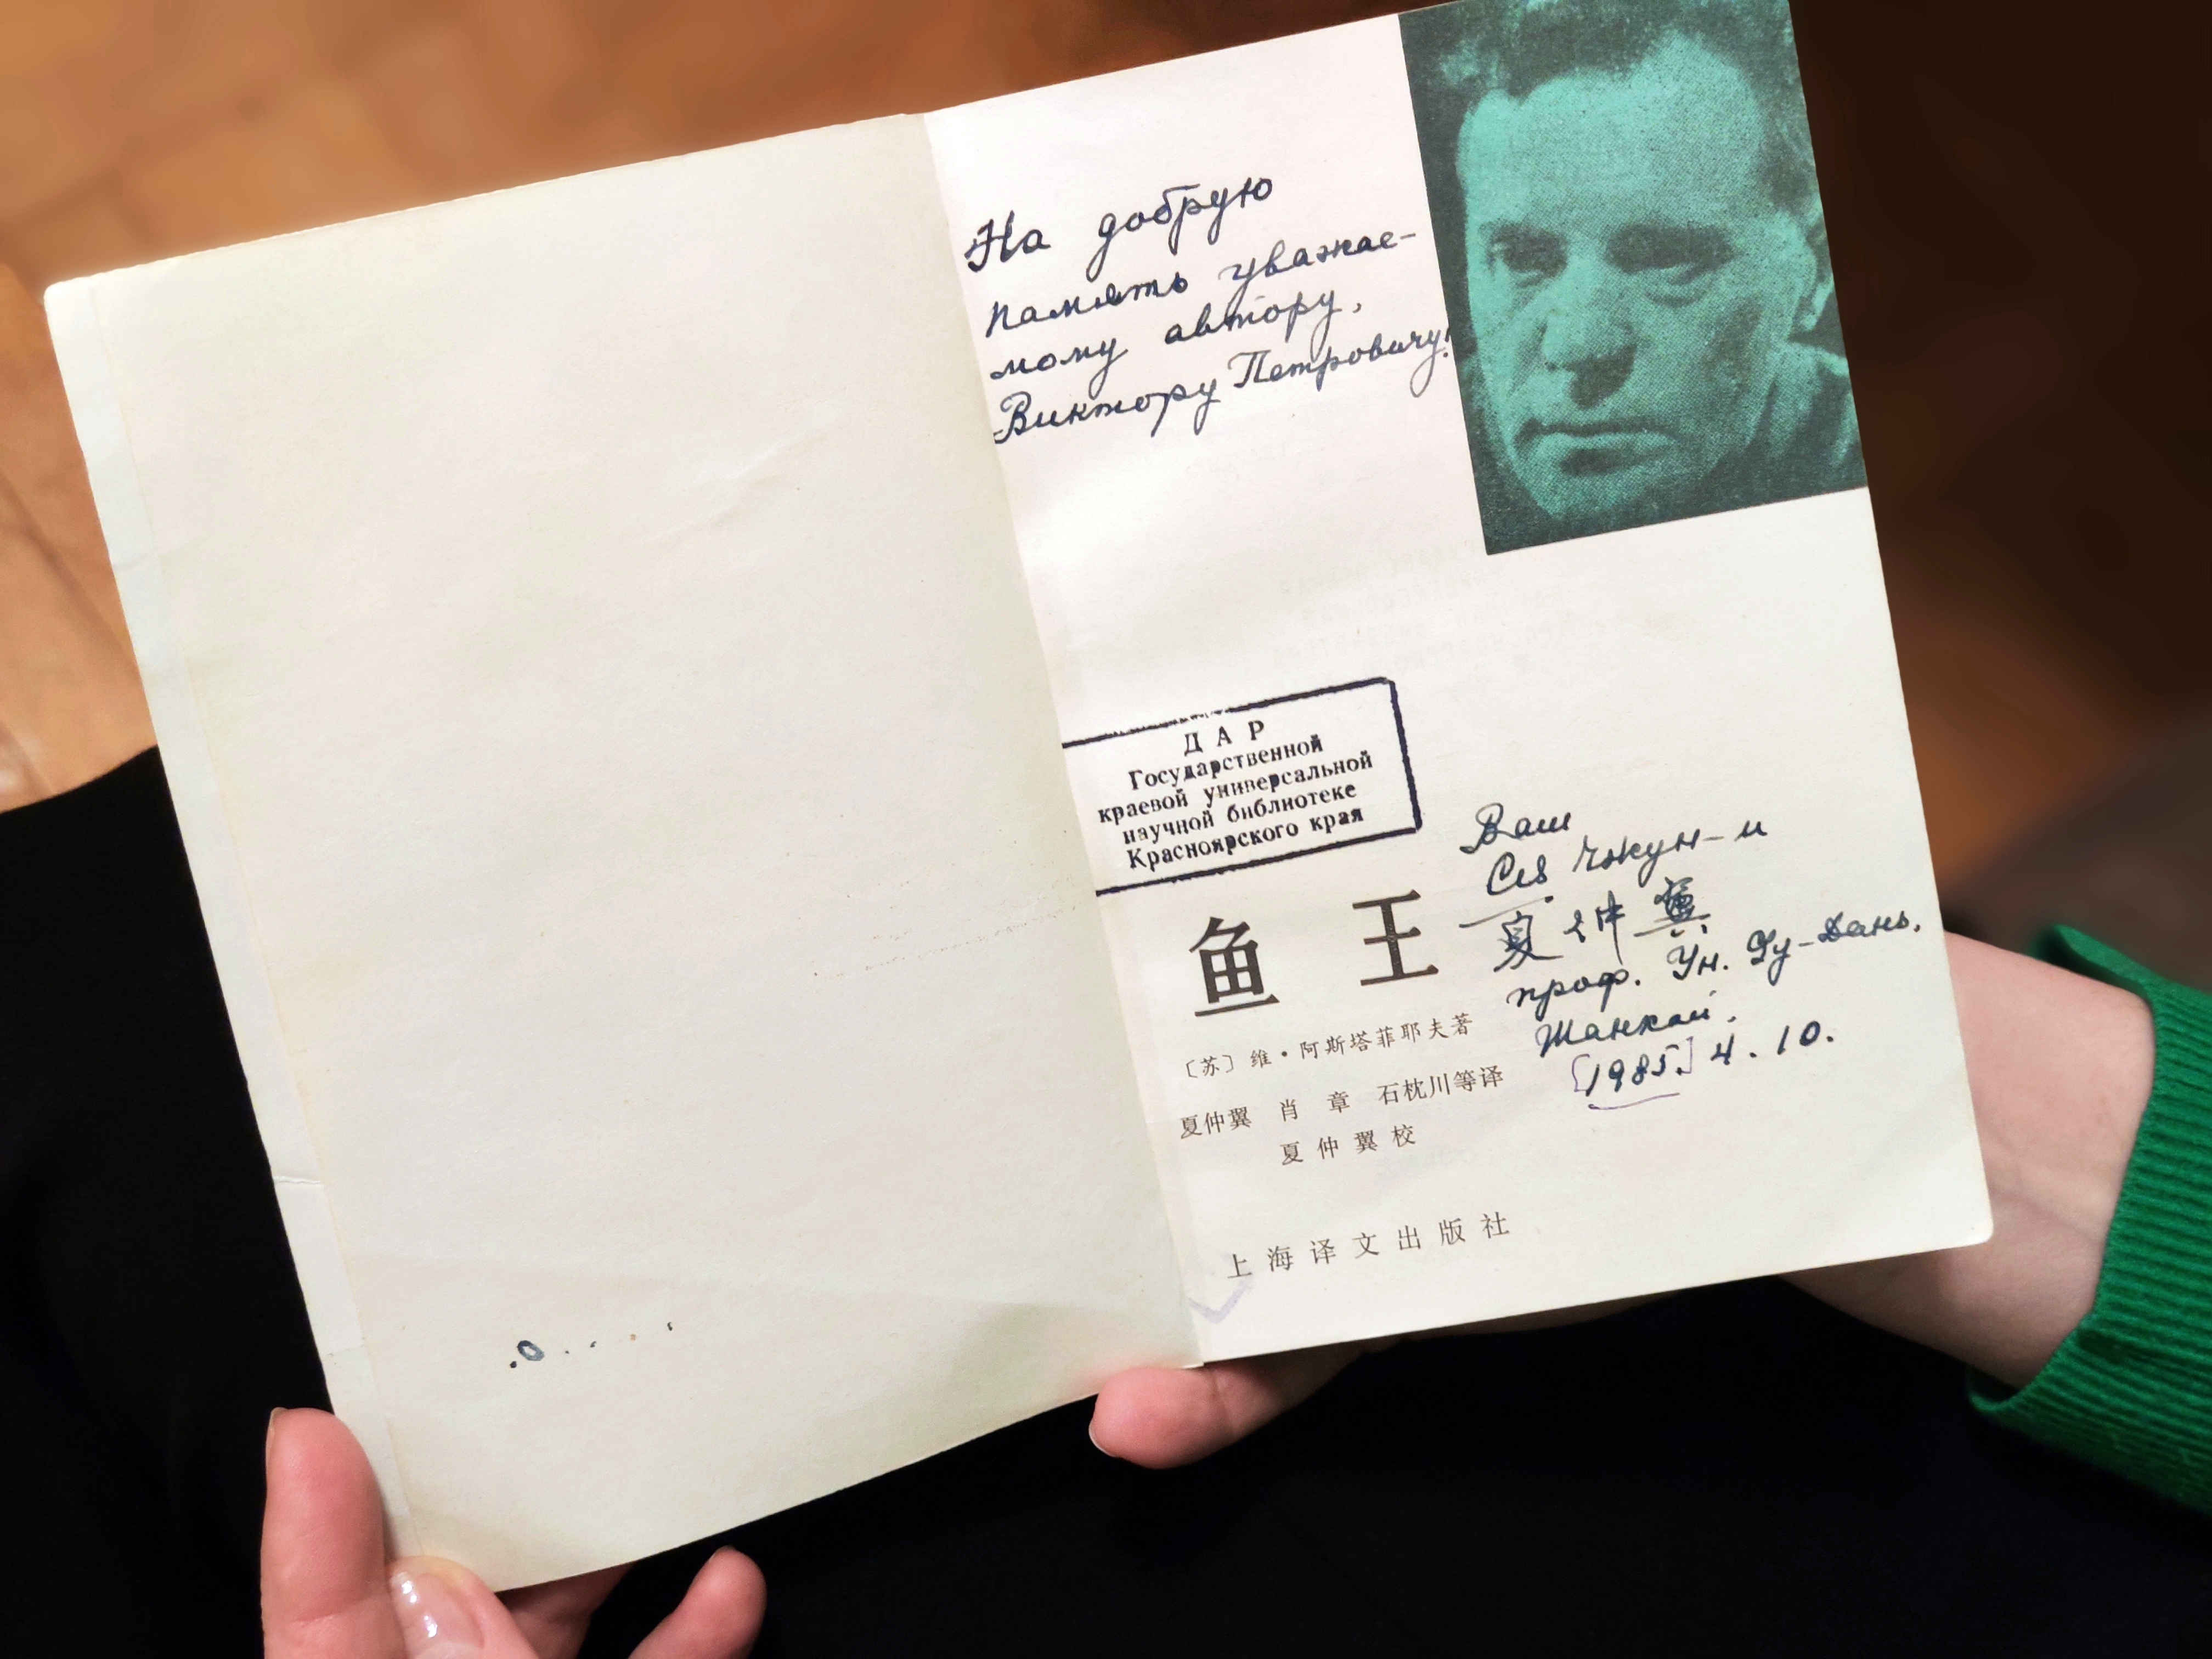 На добрую
память уважае-
мому автору,
Виктору Петровичу.
ДАР
Государственной
краевой универсальной
научной библиотеке
Красноярского края
Ваш
Ся Чжун-и
夏仲翼
проф. Ун. Фу-Дань.
Шанхай.
[1985.] 4. 10.
鱼王
〔苏〕维·阿斯塔菲耶夫著
夏仲翼 肖章 石枕川等译
夏仲翼校
上海译文出版社